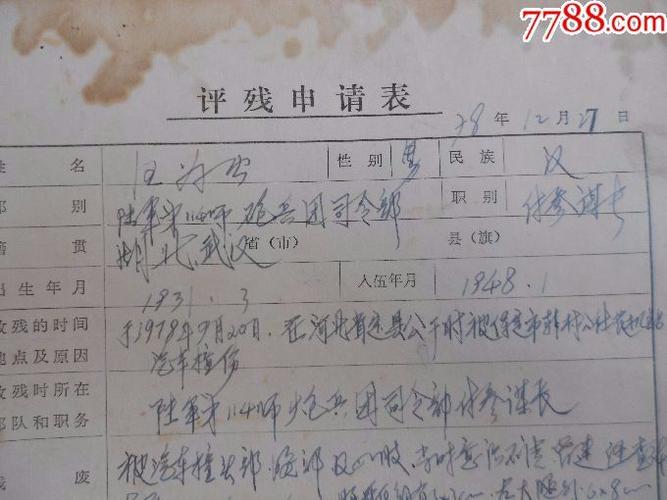 7788.com
评残申请表
78年12月27日
姓名 汪 性别 男 民族 汉
部别 陆军第114师炮兵团司令部 职别 付参谋长
籍贯 湖北省(市)武汉 县(旗)
出生年月 1931.3 入伍年月 1948.1
致残的时间 于1978年9月20日,在河北省定县公干时被保定市
地点及原因 汽车撞伤
致残时所在
部队和职务 陆军第114师炮兵团司令部付参谋长
残废 被汽车撞头部,腰部及四肢,当时意识不清,